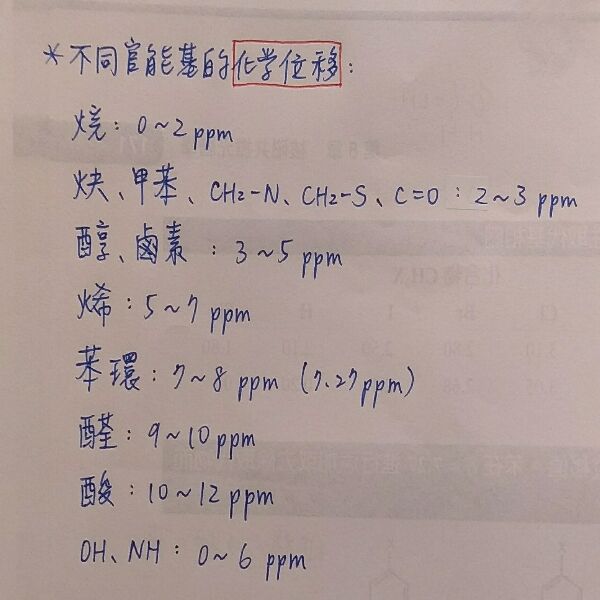 *不同官能基的化学位移:
烷: 0~2 ppm
炔、甲苯、CH2-N、CH2-S、C=O : 2~3 ppm
醇、鹵素 : 3~5 ppm
烯: 5~7 ppm
苯環: 7~8 ppm (7.27ppm)
醛: 9~10 ppm
酸: 10~12 ppm
OH、NH: 0~6 ppm